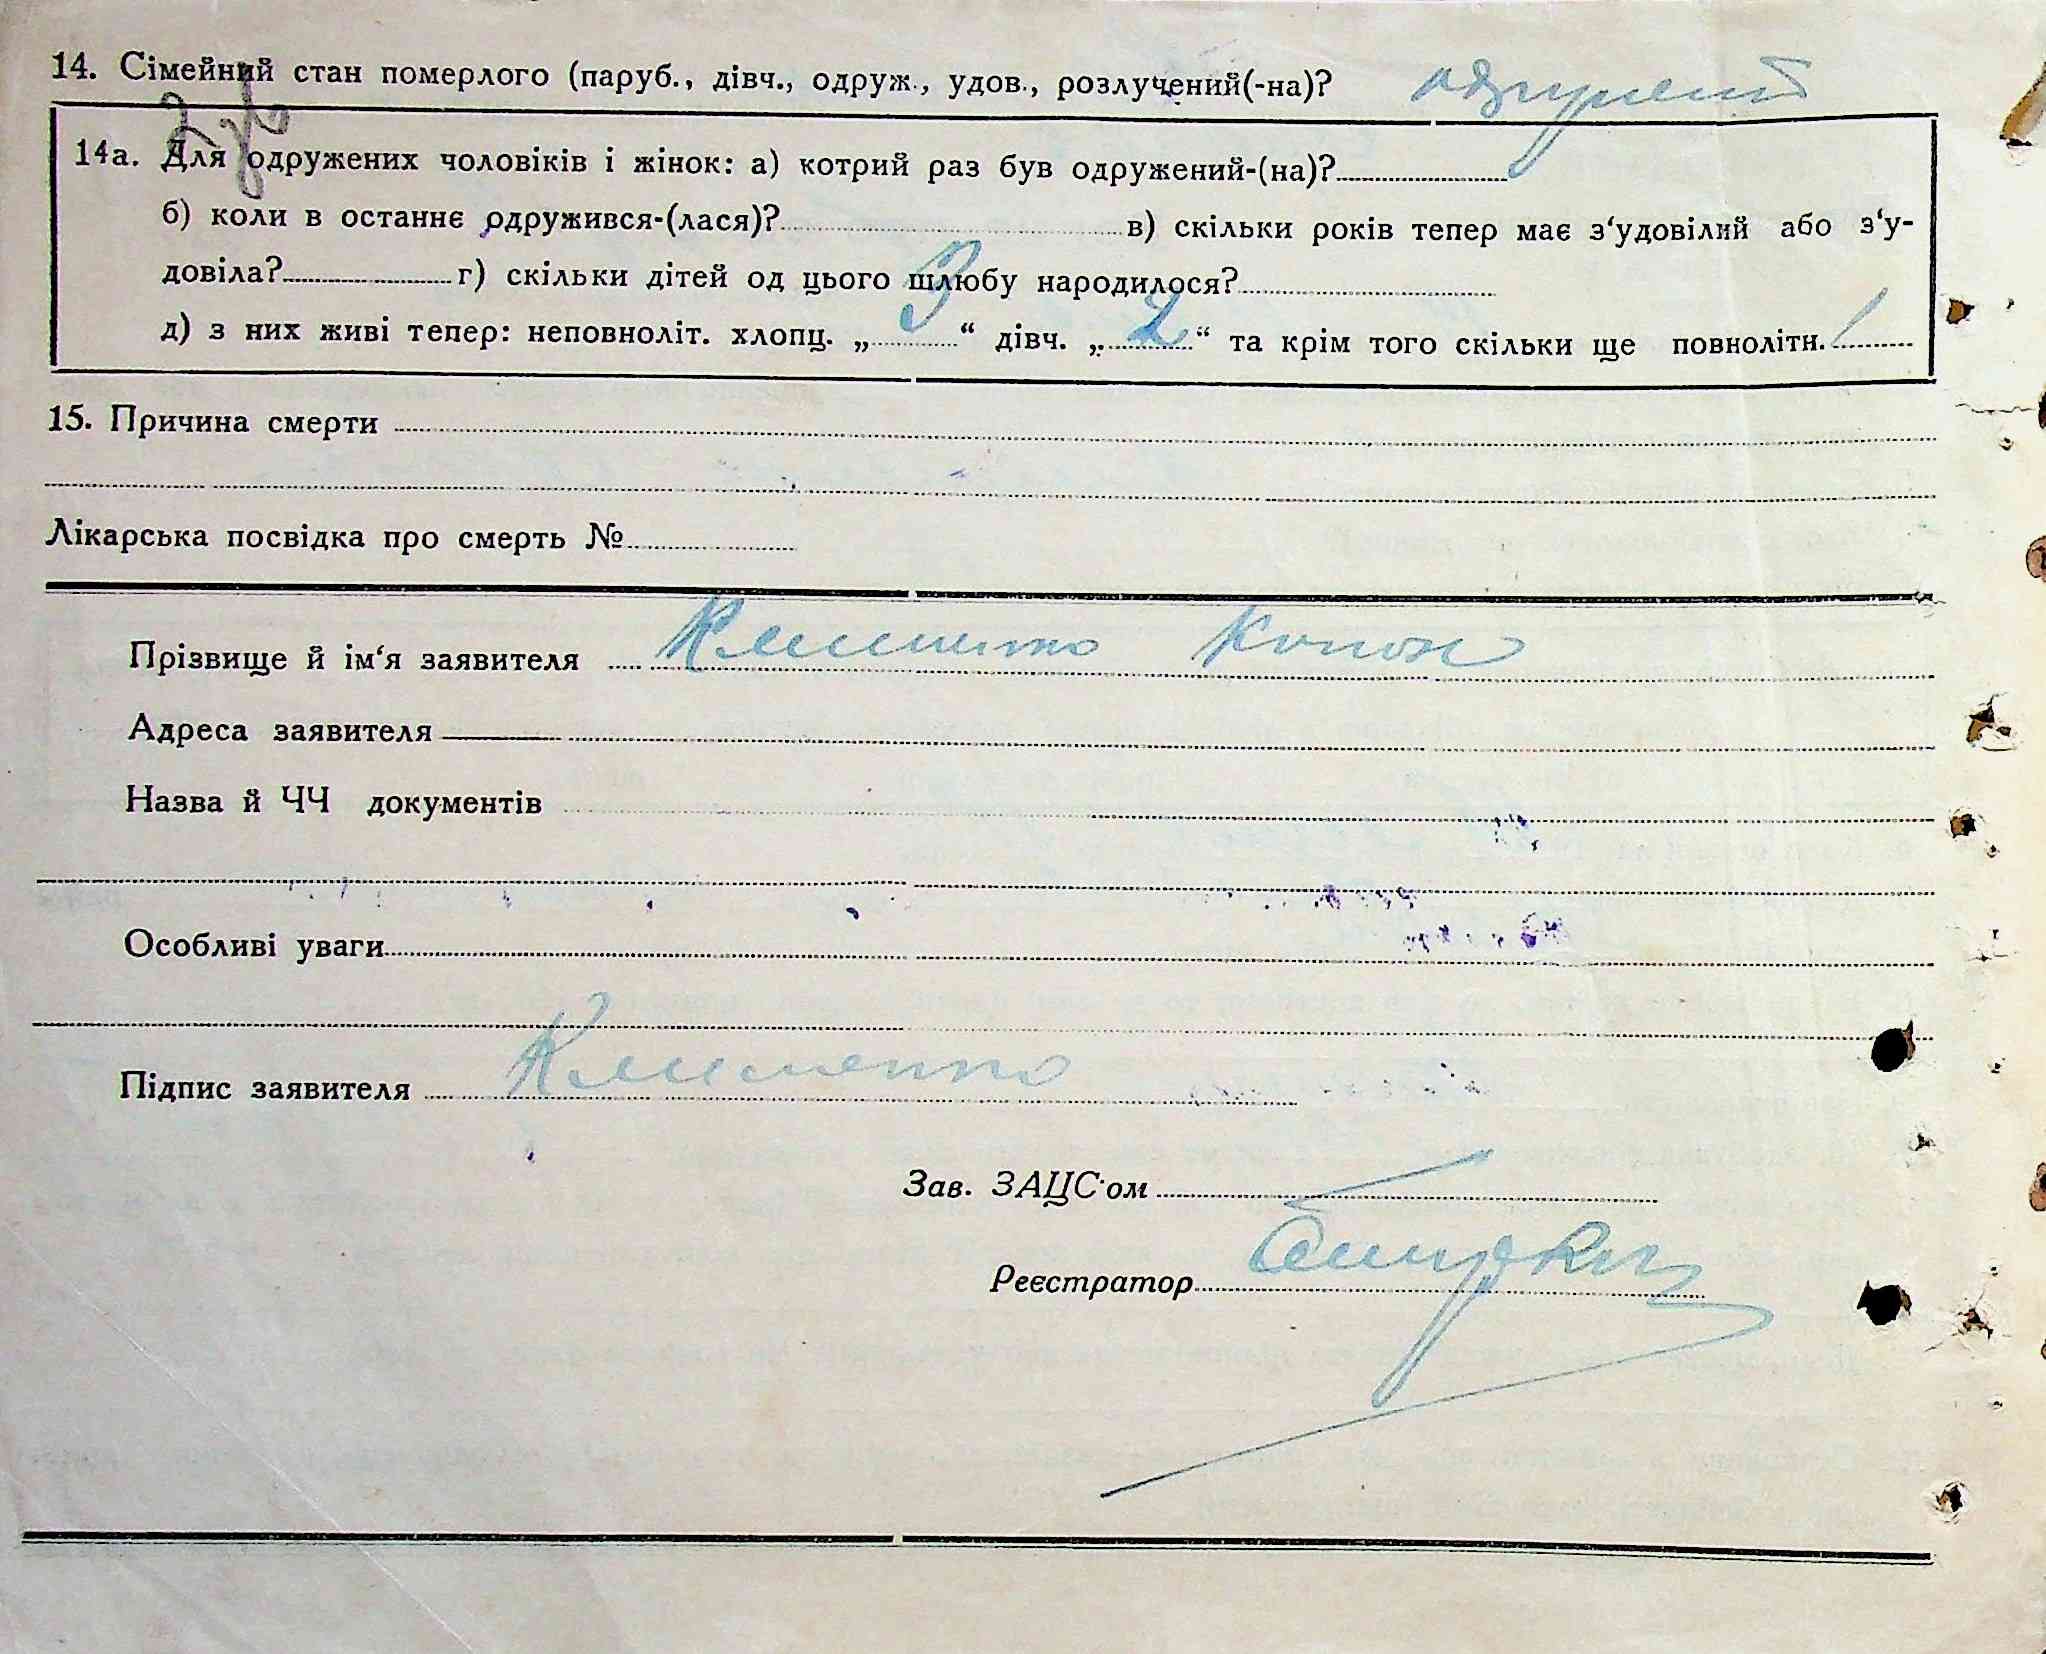 14. Сімейний стан померлого (паруб., дівч., одруж., удов., розлучений(-на)? одружений
14а. Для одружених чоловіків і жінок: а) котрий раз був одружений-(на)?
б) коли в останнє одружився-(лася)? в) скільки років тепер має з‘удовілий або з‘у-
довіла? г) скільки дітей од цього шлюбу народилося?
д) з них живі тепер: неповноліт. хлопц. „3“ дівч. „2“ та крім того скільки ще повнолітн. /
15. Причина смерти
Лікарська посвідка про смерть №
Прізвище й ім‘я заявителя Клименко Конон
Адреса заявителя
Назва й ЧЧ документів
Особливі уваги
Підпис заявителя Клименко
Зав. ЗАЦС‘ом
Реєстратор